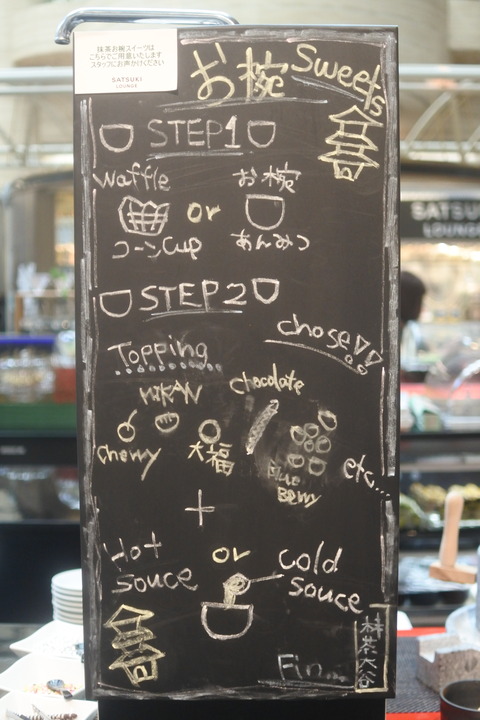 抹茶お椀スイーツは
こちらでご用意いたします
スタッフにお声かけください
SATSUKI
LOUNGE
お椀 Sweets
STEP1
Waffle お椀
or
コーンCup あんみつ
STEP2
chose!!
Topping
MIKAN chocolate
Cherry 大福 BLUE BERRY etc...
+
Hot or cold
souce souce
Fin...
抹茶大谷
SATSUKI
LOUNGE